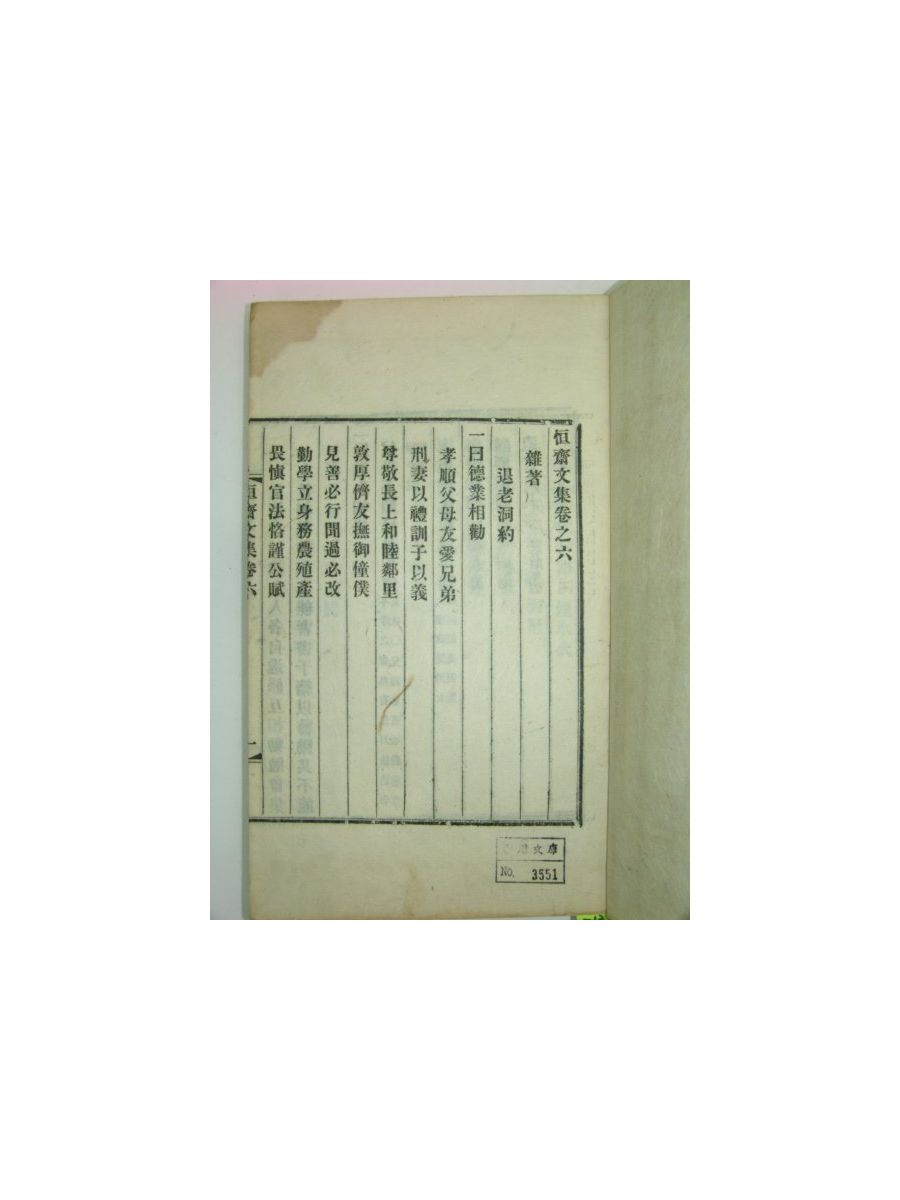 恒齋文集卷之六
雜著
退老洞約
一曰德業相勸
孝順父母友愛兄弟
刑妻以禮訓子以義
尊敬長上和睦鄰里
敦厚儕友撫御僮僕
見善必行聞過必改
勤學立身務農殖產
畏愼官法恪謹公賦
恒齋文集卷六
一
文庫
No. 3551